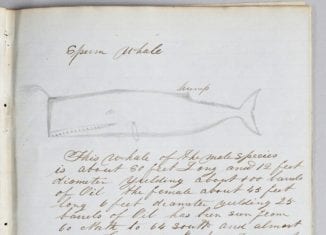 Sperm Whale
hump
This whale of the male species
is about 60 feet Long and 12 feet
diameter yielding about 100 barels
of Oil the female about 45 feet
long 6 feet diameter yielding 25
barels of Oil has ben seen from
60 North to 64 South and almost